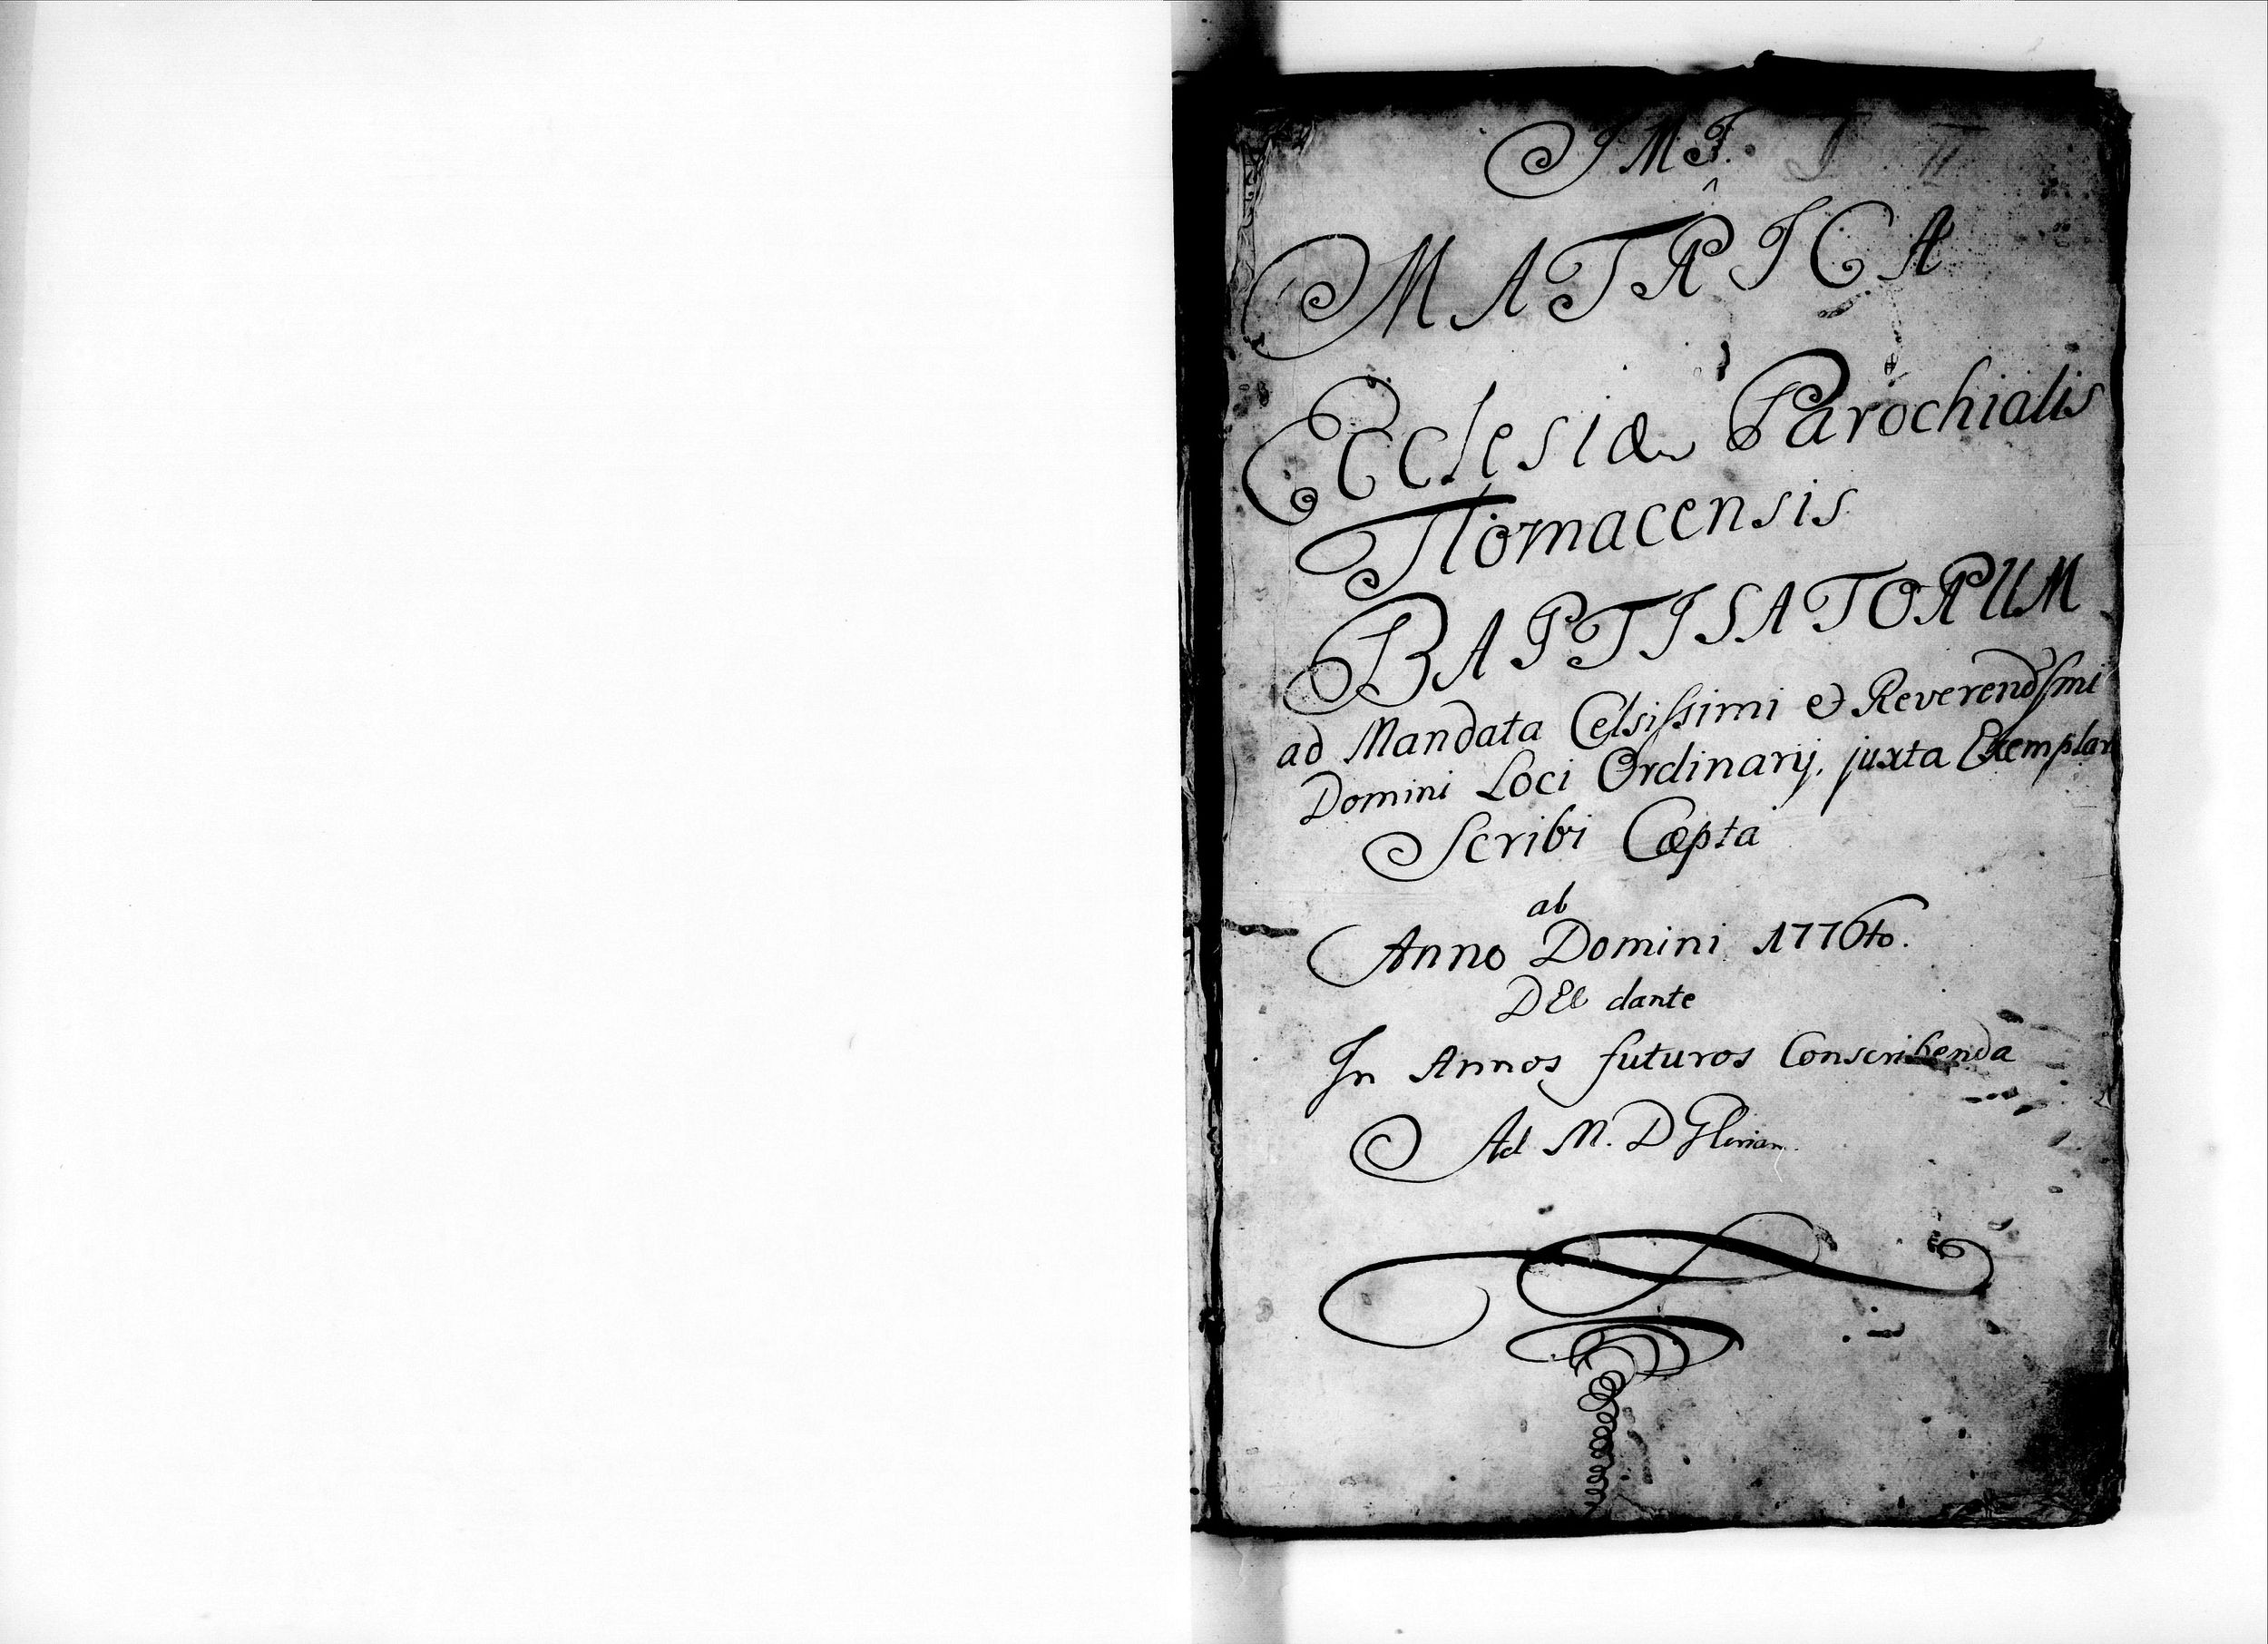 J M J.
MATRICA
Ecclesiæ Parochialis
Tlomacensis
BAPTISATORUM
ad Mandata Celsissimi & Reverendssmi
Domini Loci Ordinarij, juxta Exemplar
Scribi Cæpta
ab
Anno Domini 1776to.
DEI dante
In Annos futuros Conscribenda
Ad M. D Gloriam.